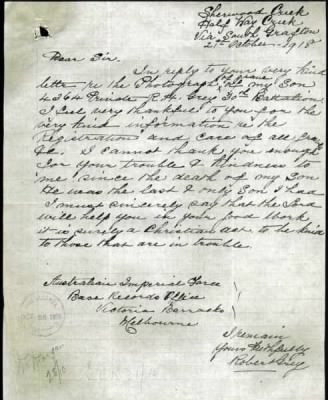 Sherwood Creek
Half Way Creek
Via South Grafton
21st October 1918
Dear Sir.
In reply to your very kind
letter re the Photograph of Grave of my Son
4364 Private R. A. Grey 30th Battalion
I feel very thankful to you for the
very kind information re the
Registration and Care of all Graves
&c. I cannot thank you enough
for your trouble & kindness to
me since the death of my Son
He was the last & only Son I had
I must sincerely say that the Lord
will help you in your good Work
it is surely a Christian act to be kind
to those that are in trouble.
Australian Imperial Force
Base Records Office
Victoria Barracks
Melbourne
I remain
Yours Faithfully
Robert Grey